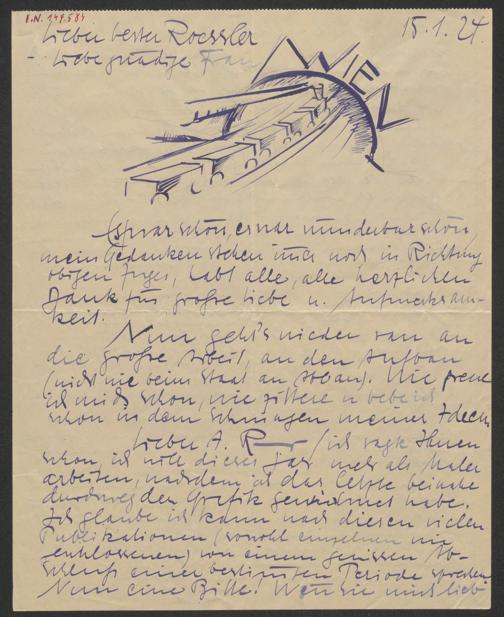 I.N. 149.584
Lieber bester Roessler
15.1.24.
– Liebe gnädige Frau
WIEN
Es war schön, es war wunderbar schön,
meine Gedanken stehen immer noch in Richtung
obigen Zuges, habt alle, alle herzlichen
Dank für große Liebe u. Aufmerksam-
keit.
Nun geht's wieder ran an
die große Arbeit, an den Aufbau
(nicht wie beim Staat an Abbau). Wie freue
ich mich schon, wie zittere u bebe ich
schon in dem Schwingen meiner Ideen
Lieber A. R (ich sagte Ihnen
schon, ich will dieses Jahr mehr als Maler
arbeiten, nachdem ich das letzte beinahe
durchweg der Grafik gewidmet habe.
Ich glaube ich kann nach diesen vielen
Publikationen (sowohl einzelnen wie
geschlossenen) von einem gewissen Ab-
schluß einer bestimmten Periode sprechen
Nun eine Bitte. Wenn Sie mich lieb